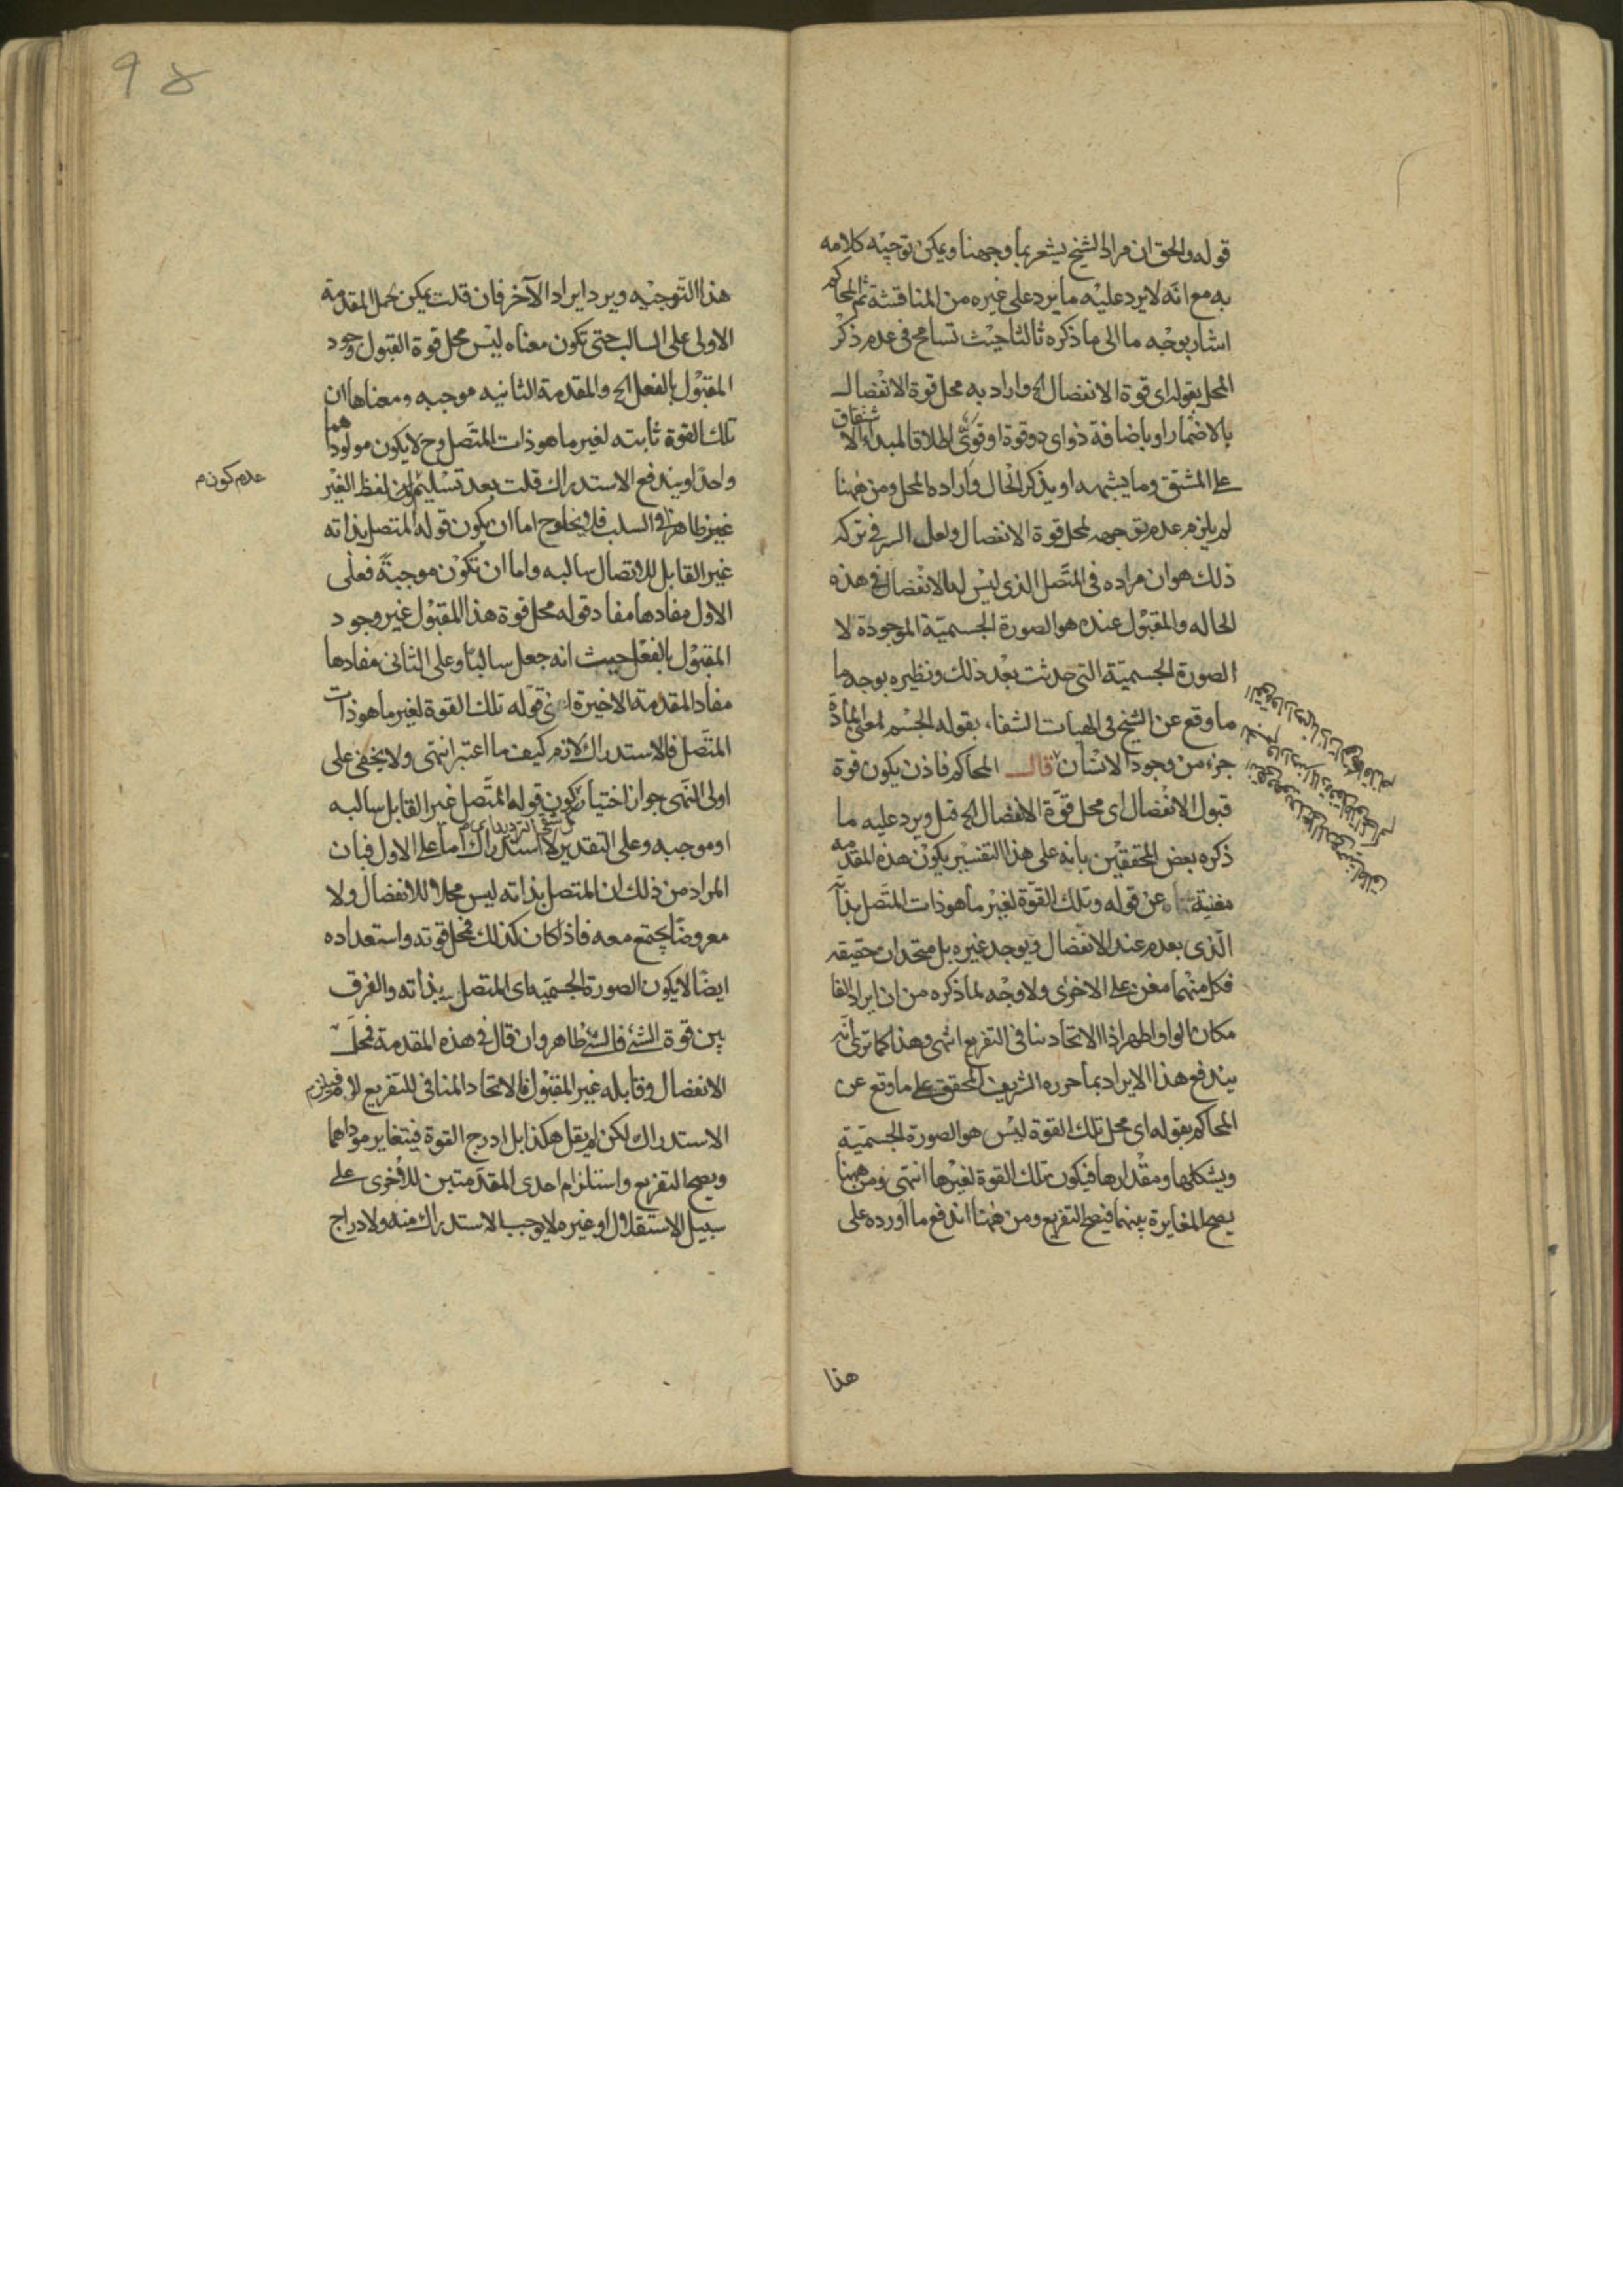 قوله والحق ان مراد الشيخ يشعر بما وجهنا ويمكن توجيه كلامه
به مع انه لا يرد عليه ما يرد على غيره من المناقشة ثم المحاكم
اشار بوجه ما الى ما ذكره ثالثا حيث تسامح في عدم ذكر
المحل بقوله اى قوة الانفصال الخ واراد به محل قوة الانفصال
بالاضمار او باضافة ذو اى ذو قوة او قوى اطلاقا لمبدء الاشتقاق
على المشتق وما يشبهه او بذكر الحال واراده المحل ومن ههنا
لم يلزم عدم توجهه لمحل قوة الانفصال ولعل السر في تركه
ذلك هو ان مراده في المتصل الذى ليس له الانفصال في هذه
الحاله والمقبول عنده هو الصورة الجسمية الموجودة لا
الصورة الجسمية التى حدثت بعد ذلك ونظيره بوجه ما
ما وقع عن الشيخ في الهيات الشفاء بقوله الجسم لمعنى المادة
جزء من وجود الانسان قال المحاكم فاذن يكون قوة
قبول الانفصال اى محل قوة الانفصال الخ قيل ويرد عليه ما
ذكره بعض المحققين بانه على هذا التفسير يكون هذه المقدمة
مغنية عن قوله وتلك القوة لغير ما هو ذات المتصل بذاته
الذى يعدم عند الانفصال ويوجد غيره بل متحدان حقيقه
فكل منهما مغن على الاخرى ولا وجه لما ذكره من ان ايراد الفا
مكان الواو اظهر اذ الاتحاد ينافى التفريع انتهى وهذا كما ترى انه
يندفع هذا الايراد بما حرره الشريف المحقق على ما وقع عن
المحاكم بقوله اى محل تلك القوة ليس هو الصورة الجسمية
ويشكلها ومقدارها فيكون تلك القوة لغيرها انتهى ومن ههنا
يصح المغايرة بينهما فيصح التفريع ومن ههنا اندفع ما اورده على
هذا
٩٥
هذا التوجيه ويرد ايراد الآخر فان قلت يمكن حمل المقدمة
الاولى على السالب حتى تكون معناه ليس محل قوة القبول وجود
المقبول بالفعل الخ والمقدمة الثانيه موجبه ومعناها ان
تلك القوة ثابته لغير ما هو ذات المتصل وح لا يكون مولودهما
واحدا ويندفع الاستدراك قلت بعد تسليم ان لفظ الغير
عدم كون م
غير ظاهر في السلب فلا يخلو ح اما ان يكون قوله المتصل بذاته
غير القابل للاتصال سالبه واما ان تكون موجبة فعلى
الاول مفادها مفاد قوله محل قوة هذا المقبول غير وجود
المقبول بالفعل حيث انه جعل سالبا وعلى الثانى مفادها
مفاد المقدمة الاخيرة اى قوله تلك القوة لغير ما هو ذات
المتصل فالاستدراك لازم كيف ما اعتبر انتهى ولا يخفى على
اولى النهى جواز اختيار كون قوله المتصل غير القابل سالبه
او موجبه وعلى التقدير لا استدراك اما على الاول فبان
المراد من ذلك ان المتصل بذاته ليس محلا للانفصال ولا
معروضا يجتمع معه فاذا كان كذلك فمحل قوته واستعداده
ايضا لا يكون الصورة الجسميه اى المتصل بذاته والفرق
بين قوة الشئ فالشئ ظاهر وان قال في هذه المقدمة فمحل
الانفصال وقابله غير المقبول فالاتحاد المنافى للتفريع لازم فيلزم
الاستدراك لكن لم يقل هكذا بل ادرج القوة فيتغاير موداهما
ويصح التفريع واستلزام احدى المقدمتين للاخرى على
سبيل الاستقلال او غيره لا يوجب الاستدراك منه ولادراج